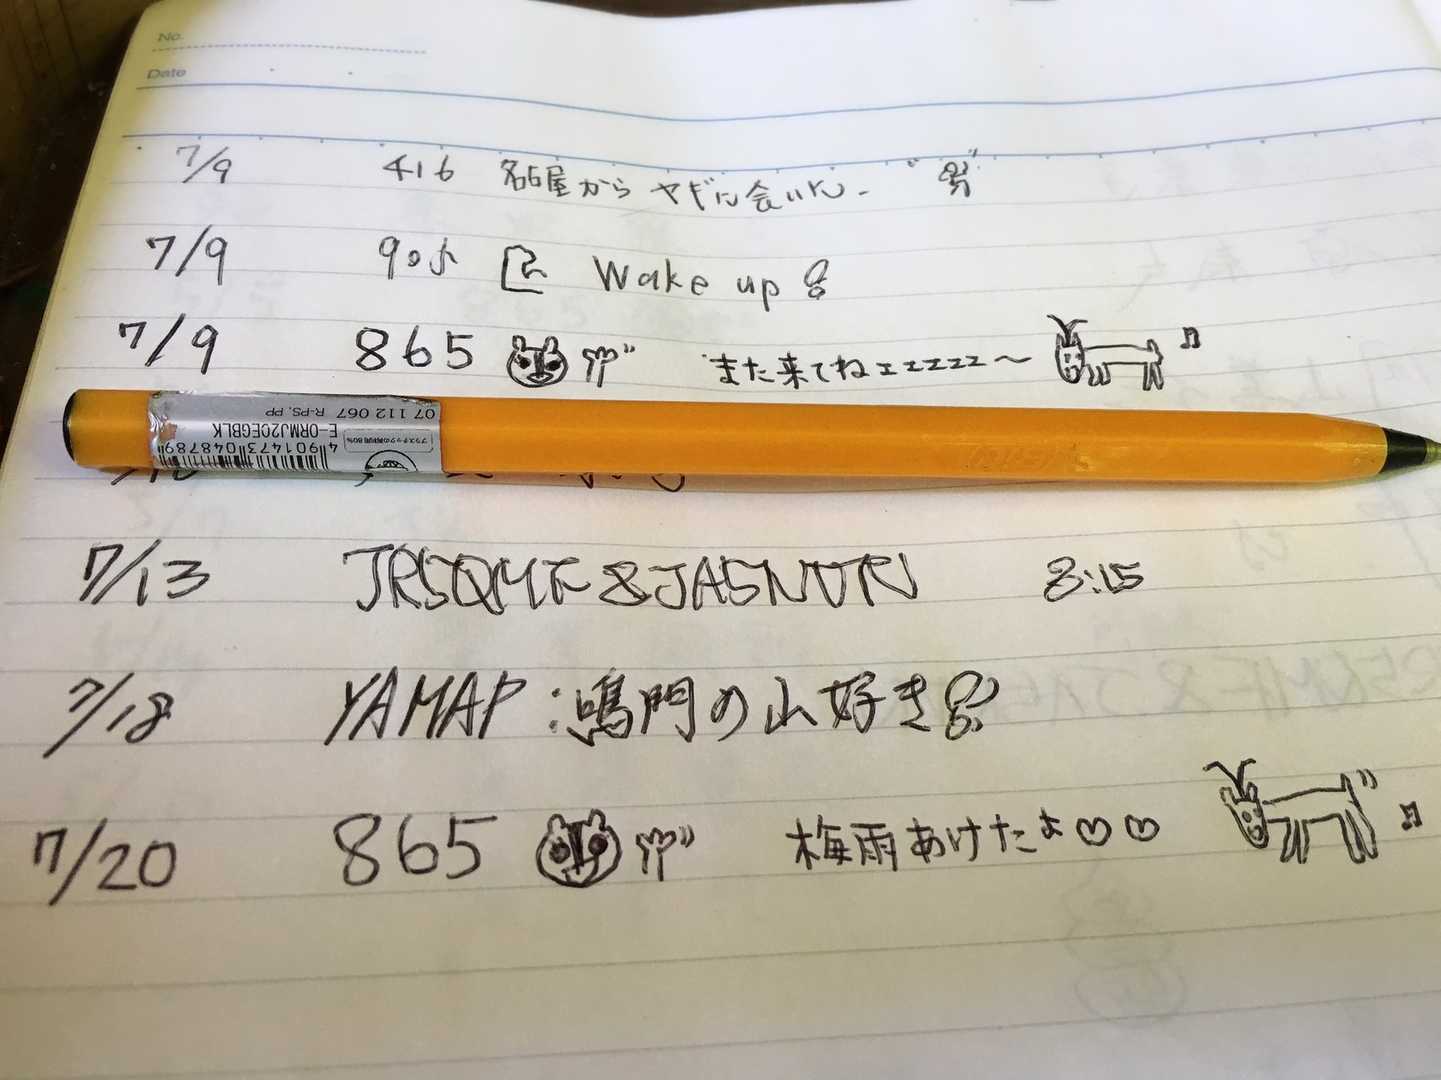 No.
Date
7/9 416 名古屋からヤギに会いに
7/9 Wake up
7/9 865 また来てねェzzzzz〜
07 112 067 R-PS, PP
E-ORMJ20EGBLK
4 901473 048789
7/13 JRSQMF&JASNUN 8:15
7/18 YAMAP:鳴門の山好き
7/20 865 梅雨あけたよ♡♡